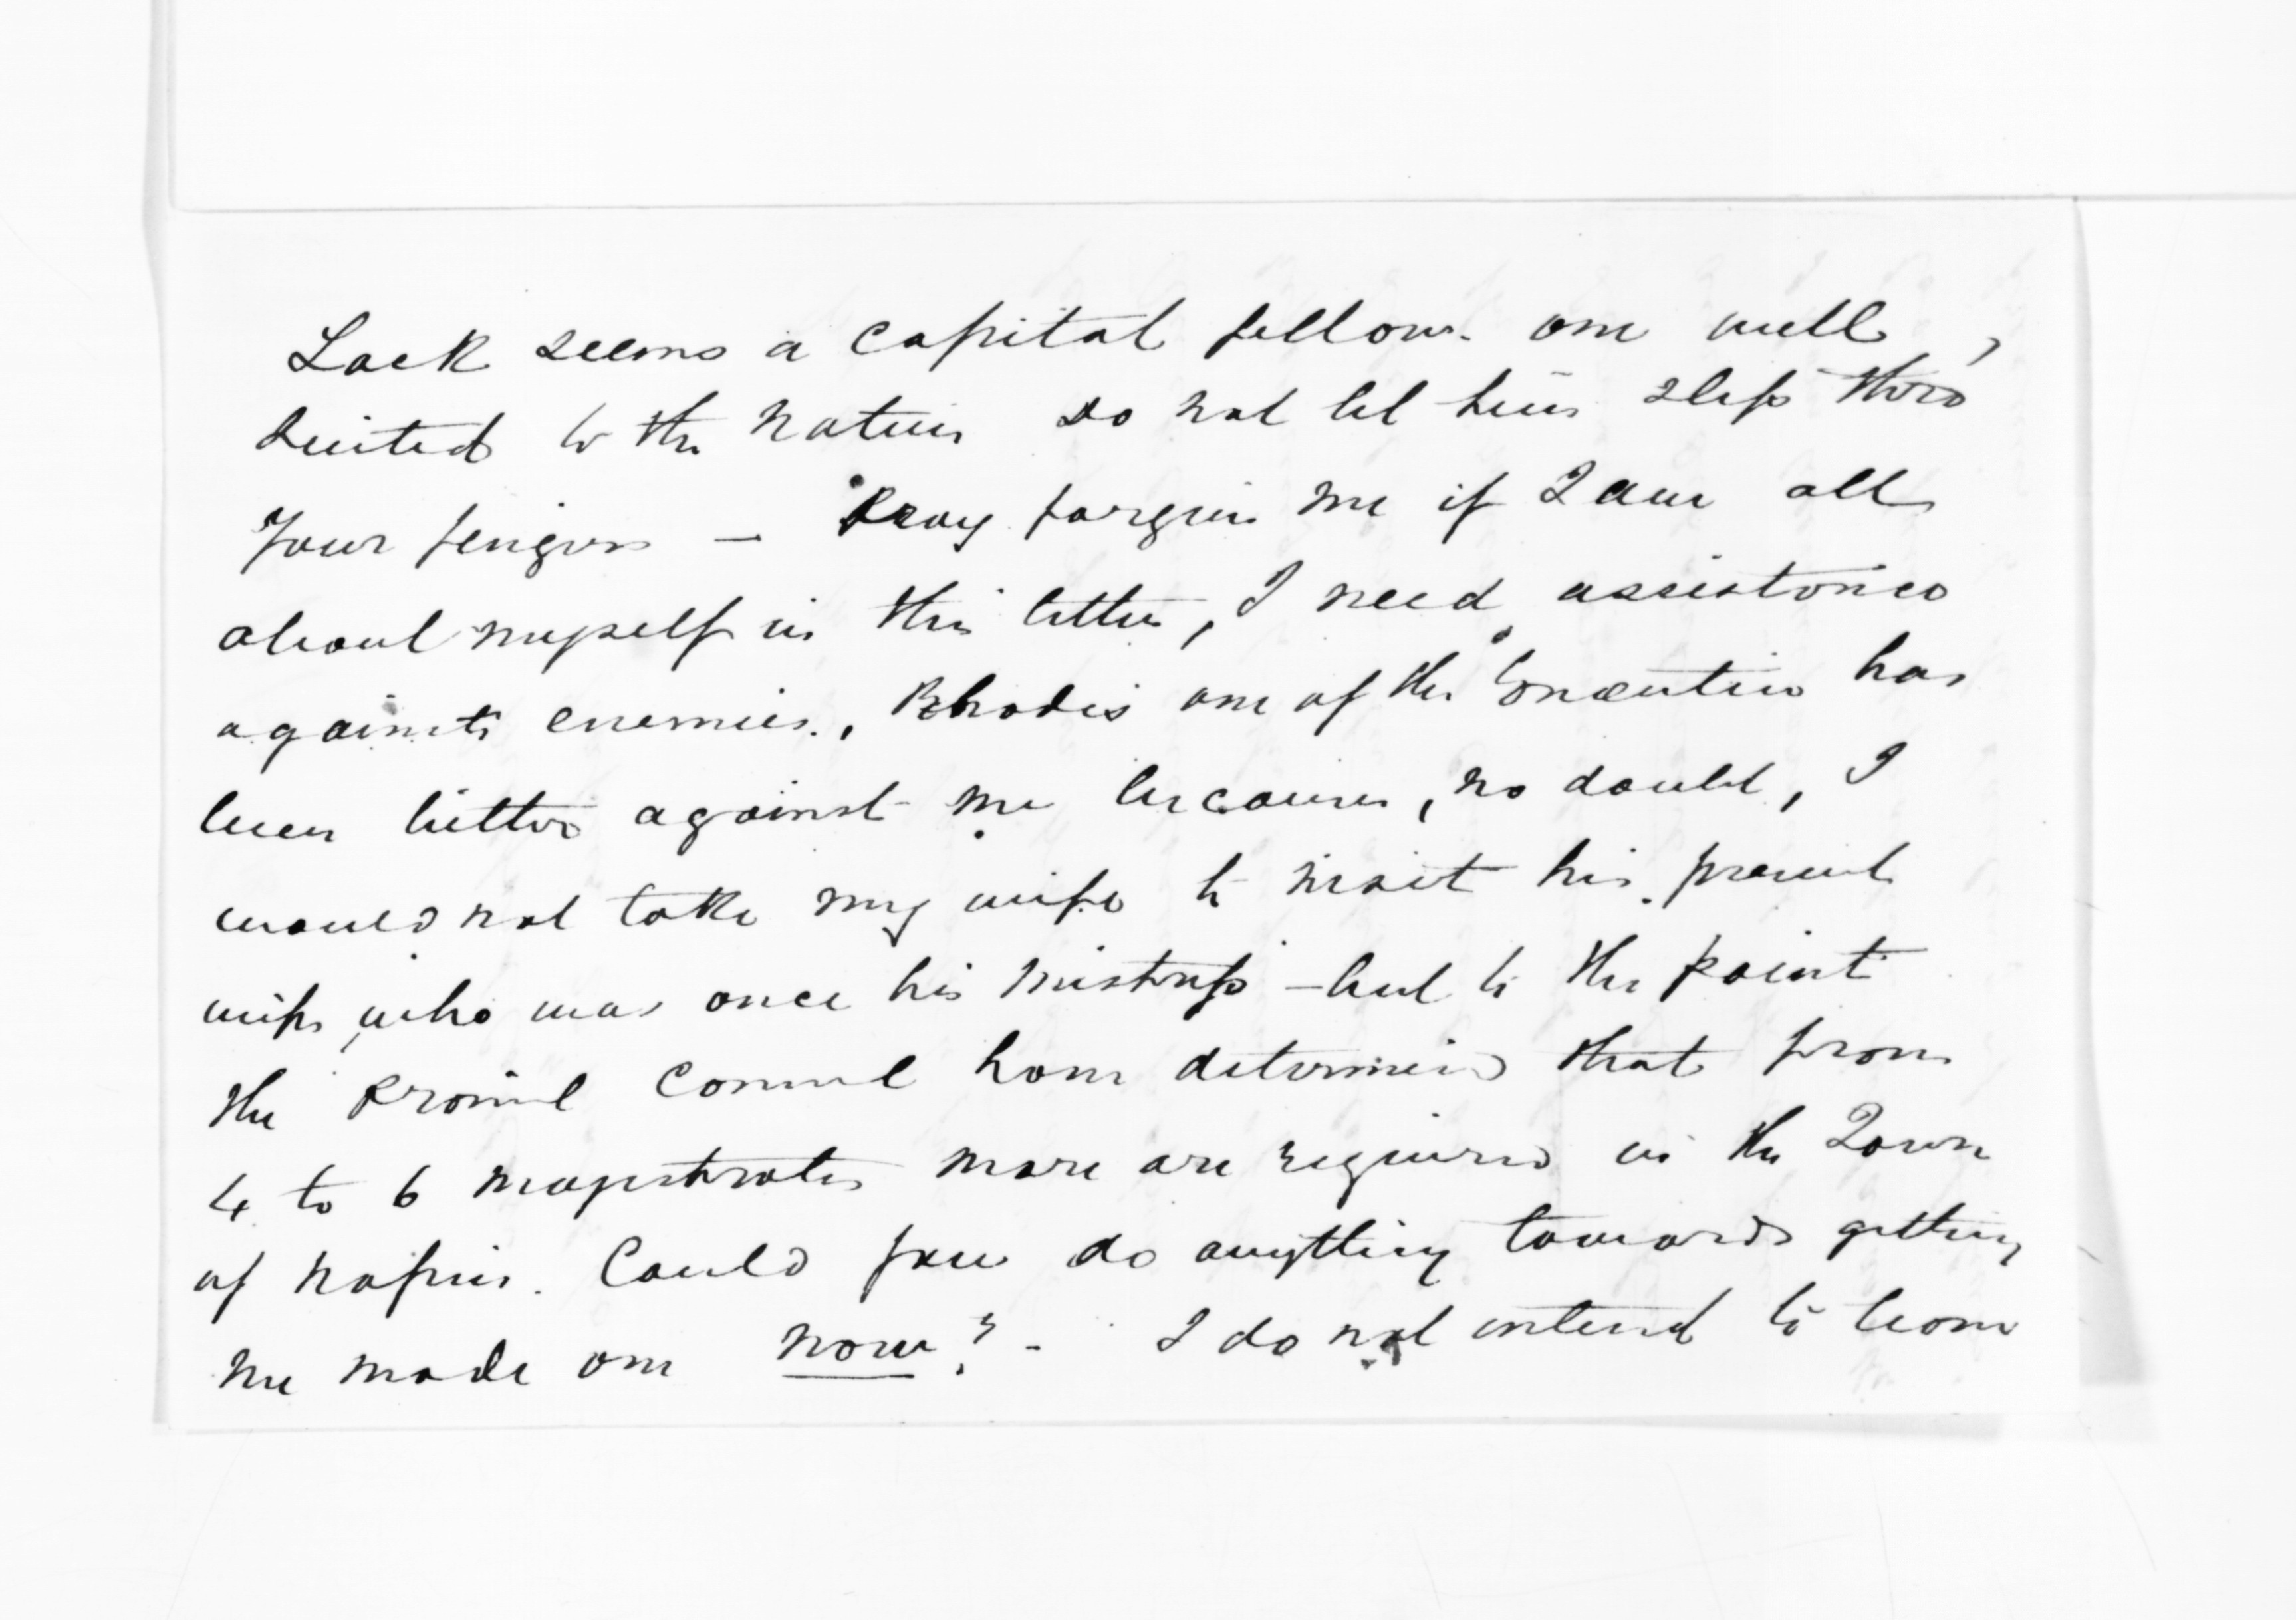 Lock seems a capital fellow. one well,
suited to the natives do not let him slip thro
your fingers — Pray forgive me if I am all
about myself in this letter, I need assistance
against enemies., Rhodes one of the Executive has
been bitter against me because, no doubt, I
would not take my wife to visit his present
wife, who was once his mistress - but to the point
the Provincl Council have determined that from
4 to 6 magistrates more are required in the Town
of Napier. Could you do anything towards getting
me made one now? - I do not intend to leave